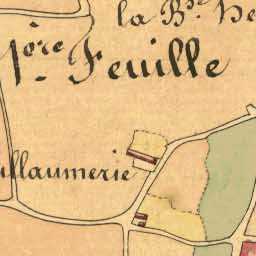 la B.se
1ère Feuille
illaumerie